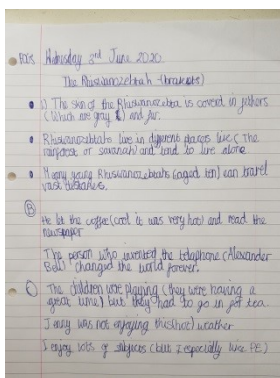 Wednesday 3rd June 2020
The Rhiswanozebtah -(brackets)
1) The skin of the Rhiswanozebta is coverd in fethers
(Which are gray) and fur.
Rhiswanozebtahs live in different places like (The
rainforest or savanah) and tend to live alone.
Many young Rhiswanozebtahs (aged ten) can travel
vast distances.
B
He let the coffee (cool it was very hot) and read the
newspaper
The person who invented the telaphone (Alexander
Bell) changed the world forever.
C The children were playing (they were having a
great time) but they had to go in for tea.
Jenny was not enjoying this (hot) weather
I enjoy lots of subjects (but I especially like PE)